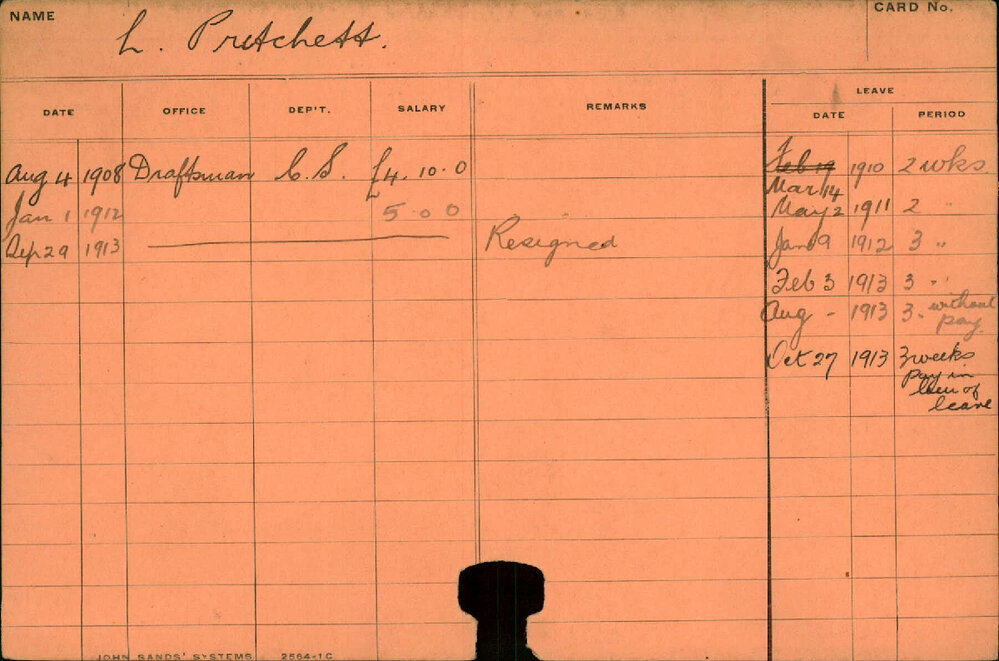 NAME
L. Pritchett.
CARD No.
DATE OFFICE DEP'T. SALARY REMARKS LEAVE
DATE PERIOD
Aug 4 1908 Draftsman C.S. £4. 10. 0
Jan 1 1912 5 0 0
Sep 29 1913 Resigned
Feb 19 1910 2 wks.
Mar 14
May 2 1911 2 "
Jan 9 1912 3 "
Feb 3 1913 3 "
Aug - 1913 3 " without
pay
Oct 27 1913 3 weeks
pay in
lieu of
leave
JOHN SANDS' SYSTEMS 2564-1C